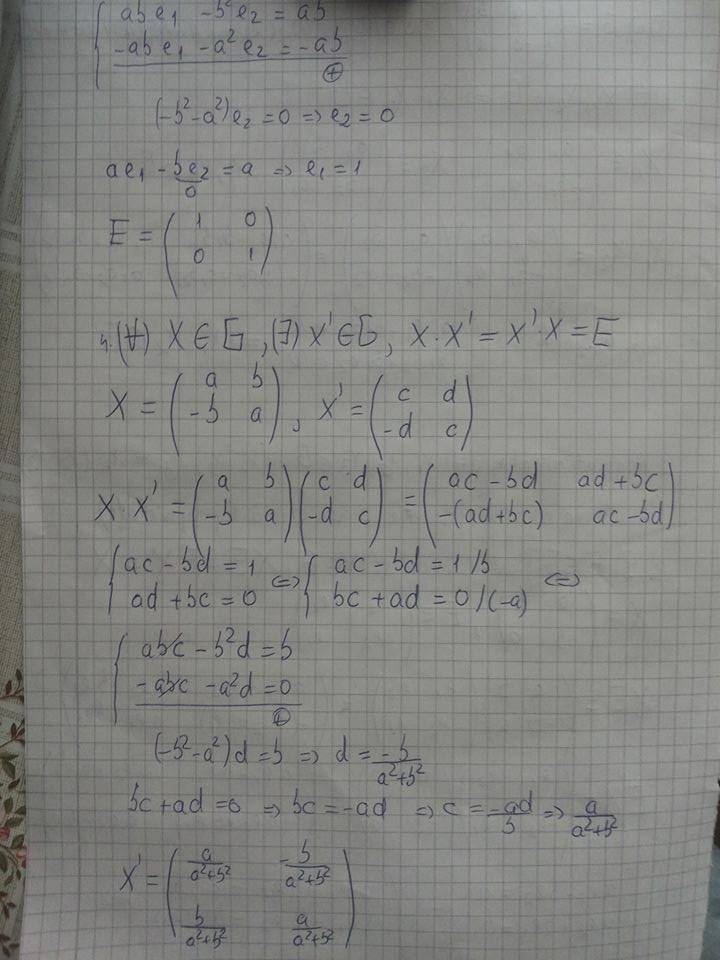 { abe₁ - b²e₂ = ab
-abe₁ - a²e₂ = -ab
⊕
(-b² - a²)e₂ = 0 ⇒ e₂ = 0
ae₁ - be₂ = a ⇒ e₁ = 1
0
E = ( 1 0
0 1 )
4. (∀) X ∈ G, (∃) X' ∈ G, X · X' = X' · X = E
X = ( a b
-b a ), X' = ( c d
-d c )
X · X' = ( a b
-b a ) ( c d
-d c ) = ( ac - bd ad + bc
-(ad + bc) ac - bd )
{ ac - bd = 1
ad + bc = 0 ⇔ { ac - bd = 1 /b
bc + ad = 0 /(-a) ⇔
{ abc - b²d = b
-abc - a²d = 0
⊕
(-b² - a²)d = b ⇒ d = -b/(a²+b²)
bc + ad = 0 ⇒ bc = -ad ⇒ c = -ad/b ⇒ a/(a²+b²)
X' = ( a/(a²+b²) -b/(a²+b²)
b/(a²+b²) a/(a²+b²) )